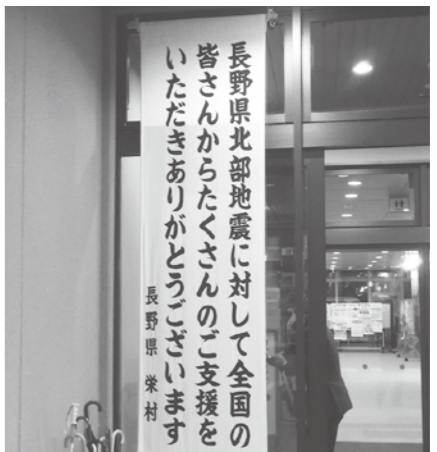 長野県北部地震に対して全国の
皆さんからたくさんのご支援を
いただきありがとうございます
長野県 栄村